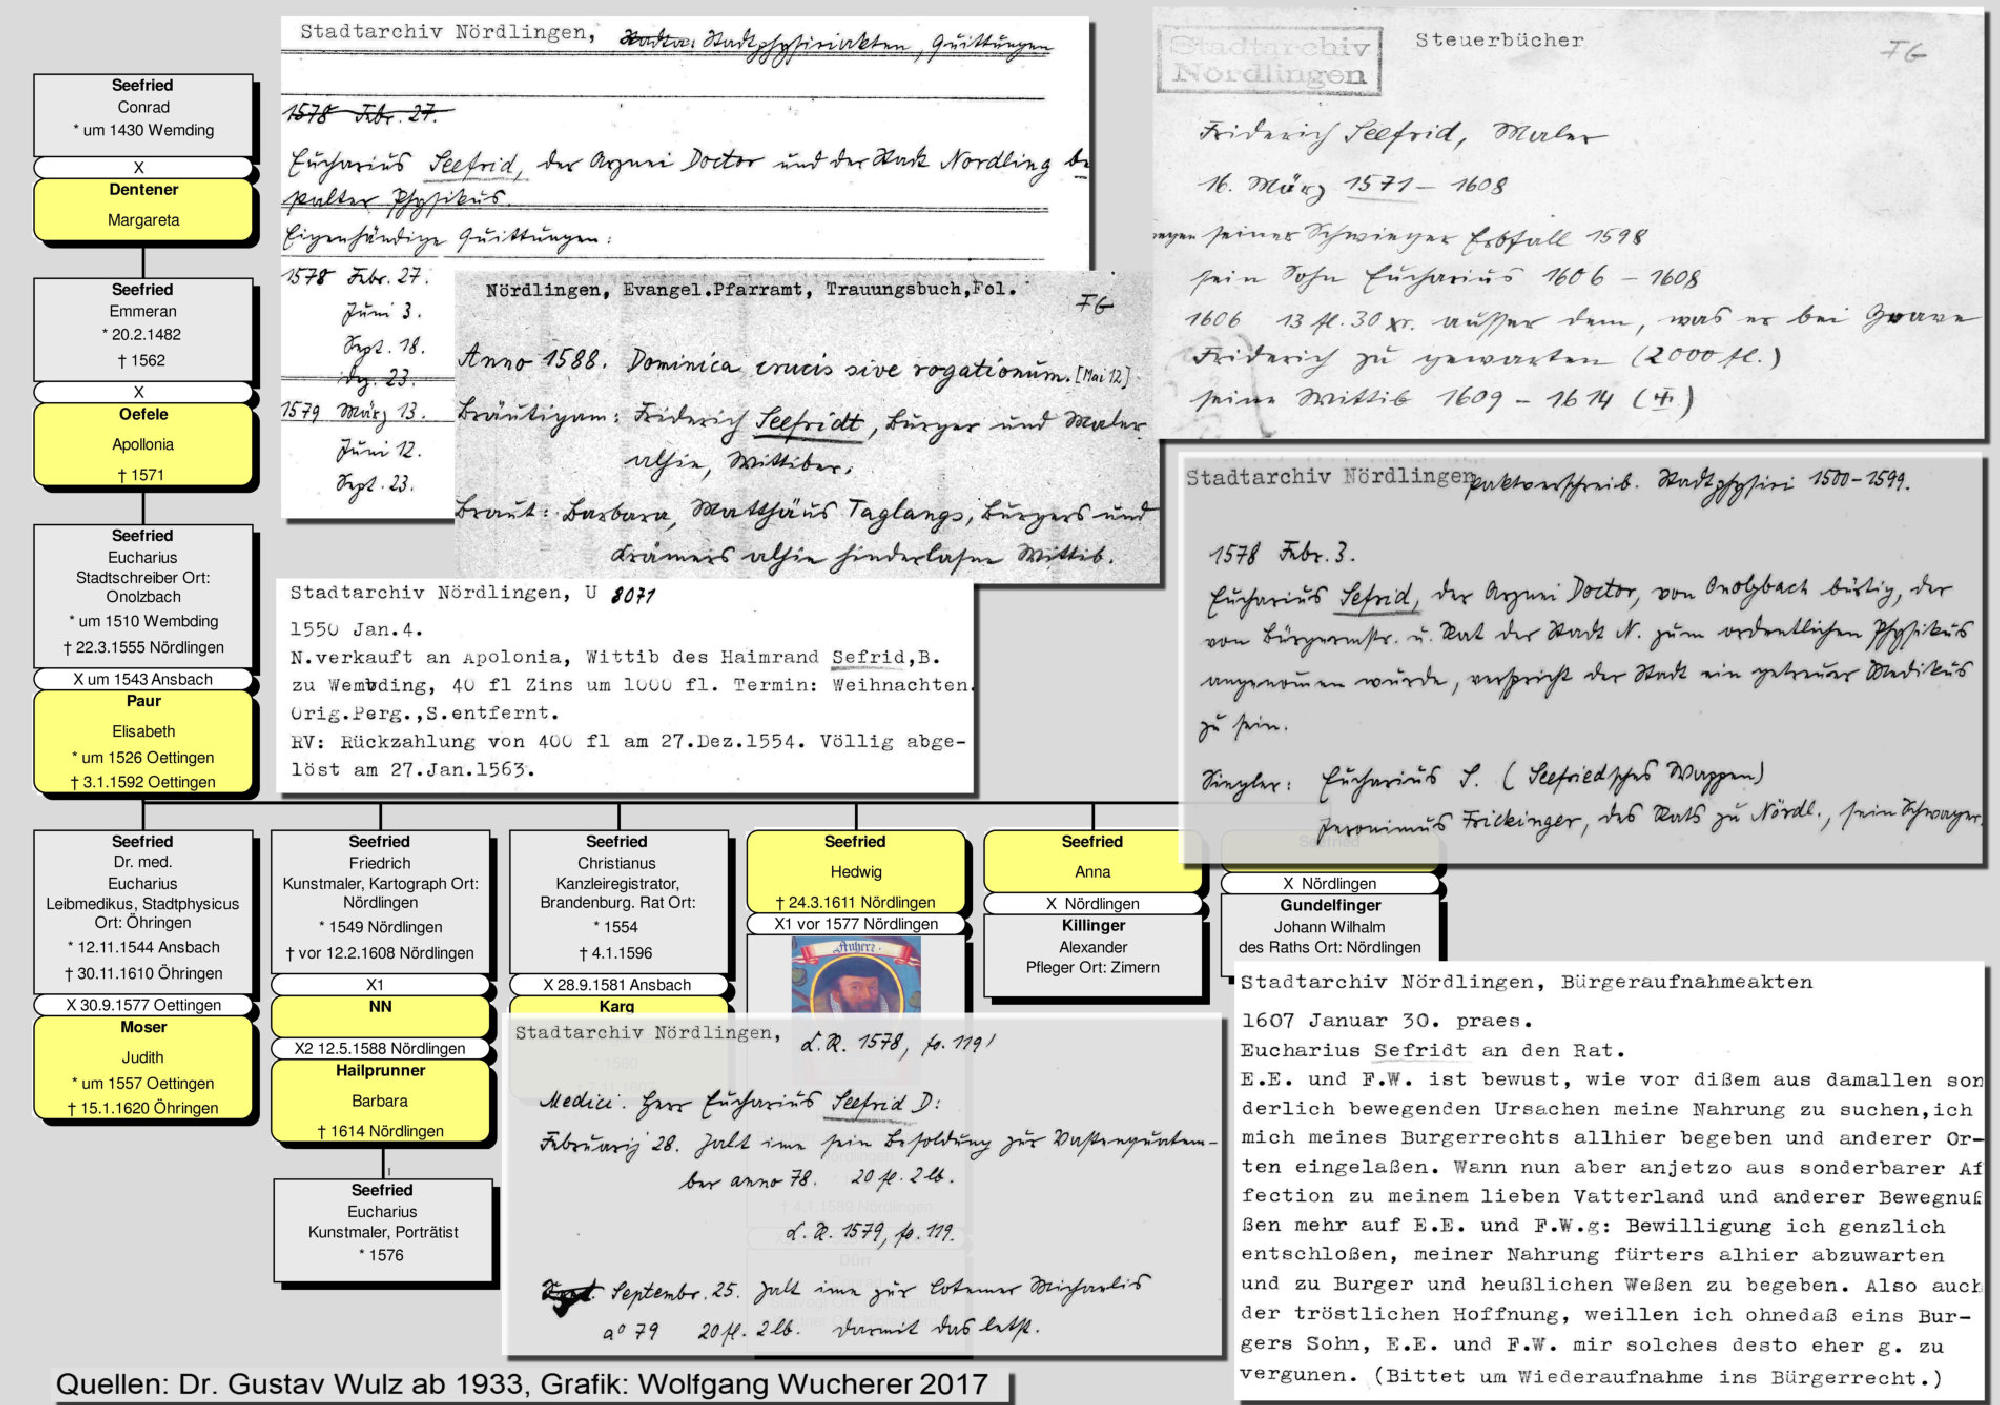 Seefried
Conrad
* um 1430 Wemding
X
Dentener
Margareta
Seefried
Emmeran
* 20.2.1482
† 1562
X
Oefele
Apollonia
† 1571
Seefried
Eucharius
Stadtschreiber Ort:
Onolzbach
* um 1510 Wembding
† 22.3.1555 Nördlingen
X um 1543 Ansbach
Paur
Elisabeth
* um 1526 Oettingen
† 3.1.1592 Oettingen
Seefried
Dr. med.
Eucharius
Leibmedikus, Stadtphysicus
Ort: Öhringen
* 12.11.1544 Ansbach
† 30.11.1610 Öhringen
X 30.9.1577 Oettingen
Moser
Judith
* um 1557 Oettingen
† 15.1.1620 Öhringen
Seefried
Friedrich
Kunstmaler, Kartograph Ort:
Nördlingen
* 1549 Nördlingen
† vor 12.2.1608 Nördlingen
X1
NN
X2 12.5.1588 Nördlingen
Hailprunner
Barbara
† 1614 Nördlingen
Seefried
Eucharius
Kunstmaler, Porträtist
* 1576
Seefried
Christianus
Kanzleiregistrator,
Brandenburg. Rat Ort:
* 1554
† 4.1.1596
X 28.9.1581 Ansbach
Karg
Seefried
Hedwig
† 24.3.1611 Nördlingen
X1 vor 1577 Nördlingen
Anherr
Seefried
Anna
X Nördlingen
Killinger
Alexander
Pfleger Ort: Zimern
Seefried
X Nördlingen
Gundelfinger
Johann Wilhalm
des Raths Ort: Nördlingen
Stadtarchiv Nördlingen, Stadtphysiciakten, Quittungen
1578 Febr. 27.
Eucharius Seefrid, der Arznei Doctor und der Stadt Nordling be
stalter Physikus.
Eigenhändige Quittungen:
1578 Febr. 27.
Juni 3.
Sept. 18.
Dez. 23.
1579 März 13.
Juni 12.
Sept. 23.
Nördlingen, Evangel.Pfarramt, Trauungsbuch,Fol.
FG
Anno 1588. Dominica crucis sive rogationum. [Mai 12]
Bräutigam: Friderich Seefridt, Burger und Maler
alhie, Wittiber.
Braut: Barbara, Matthäus Taglangs, Burgers und
Krämers alhie hinderlasne Wittib.
Stadtarchiv Nördlingen, U 8071
1550 Jan.4.
N.verkauft an Apolonia, Wittib des Haimrand Sefrid,B.
zu Wembding, 40 fl Zins um 1000 fl. Termin: Weihnachten.
Orig.Perg.,S.entfernt.
RV: Rückzahlung von 400 fl am 27.Dez.1554. Völlig abge-
löst am 27.Jan.1563.
Stadtarchiv
Nördlingen
Steuerbücher
FG
Friderich Seefrid, Maler
16. März 1571 - 1608
wegen seiner Schwieger Erbfall 1598
sein Sohn Eucharius 1606 - 1608
1606 13 fl. 30 xr. ausser dem, was er bei
Friderich zu gewarten (2000 fl.)
seine Wittib 1609 - 1614 (†)
Stadtarchiv Nördlingen Paktverschreib. Stadtphysici 1500-1599.
1578 Febr. 3.
Eucharius Sefrid, der Arznei Doctor, von Onolzbach bürtig, der
von Bürgermstr. u. Rat der Stadt N. zum ordentlichen Physikus
angenomen wurde, verspricht der Stadt ein getreuer Medikus
zu sein.
Siegler: Eucharius S. (Seefriedsches Wappen)
Jeronimus Frickinger, des Rats zu Nördl., sein Schwager.
Stadtarchiv Nördlingen, L.R. 1578, fo. 119'
Medici. Herr Eucharius Seefrid D:
Februarij 28. zalt ime sein Besoldung zur Vastenquatem-
ber anno 78. 20 fl. 2 lb.
L.R. 1579, fo. 119.
Septembr. 25. zalt ime zur Cotemer Michaelis
aº 79 20 fl. 2 lb. darmit das letst.
Stadtarchiv Nördlingen, Bürgeraufnahmeakten
1607 Januar 30. praes.
Eucharius Sefridt an den Rat.
E.E. und F.W. ist bewust, wie vor dißem aus damallen son
derlich bewegenden Ursachen meine Nahrung zu suchen,ich
mich meines Burgerrechts allhier begeben und anderer Or-
ten eingelaßen. Wann nun aber anjetzo aus sonderbarer Af
fection zu meinem lieben Vatterland und anderer Bewegnuß
ßen mehr auf E.E. und F.W.g: Bewilligung ich genzlich
entschloßen, meiner Nahrung fürters alhier abzuwarten
und zu Burger und heußlichen Weßen zu begeben. Also auch
der tröstlichen Hoffnung, weillen ich ohnedaß eins Bur-
gers Sohn, E.E. und F.W. mir solches desto eher g. zu
vergunen. (Bittet um Wiederaufnahme ins Bürgerrecht.)
Quellen: Dr. Gustav Wulz ab 1933, Grafik: Wolfgang Wucherer 2017